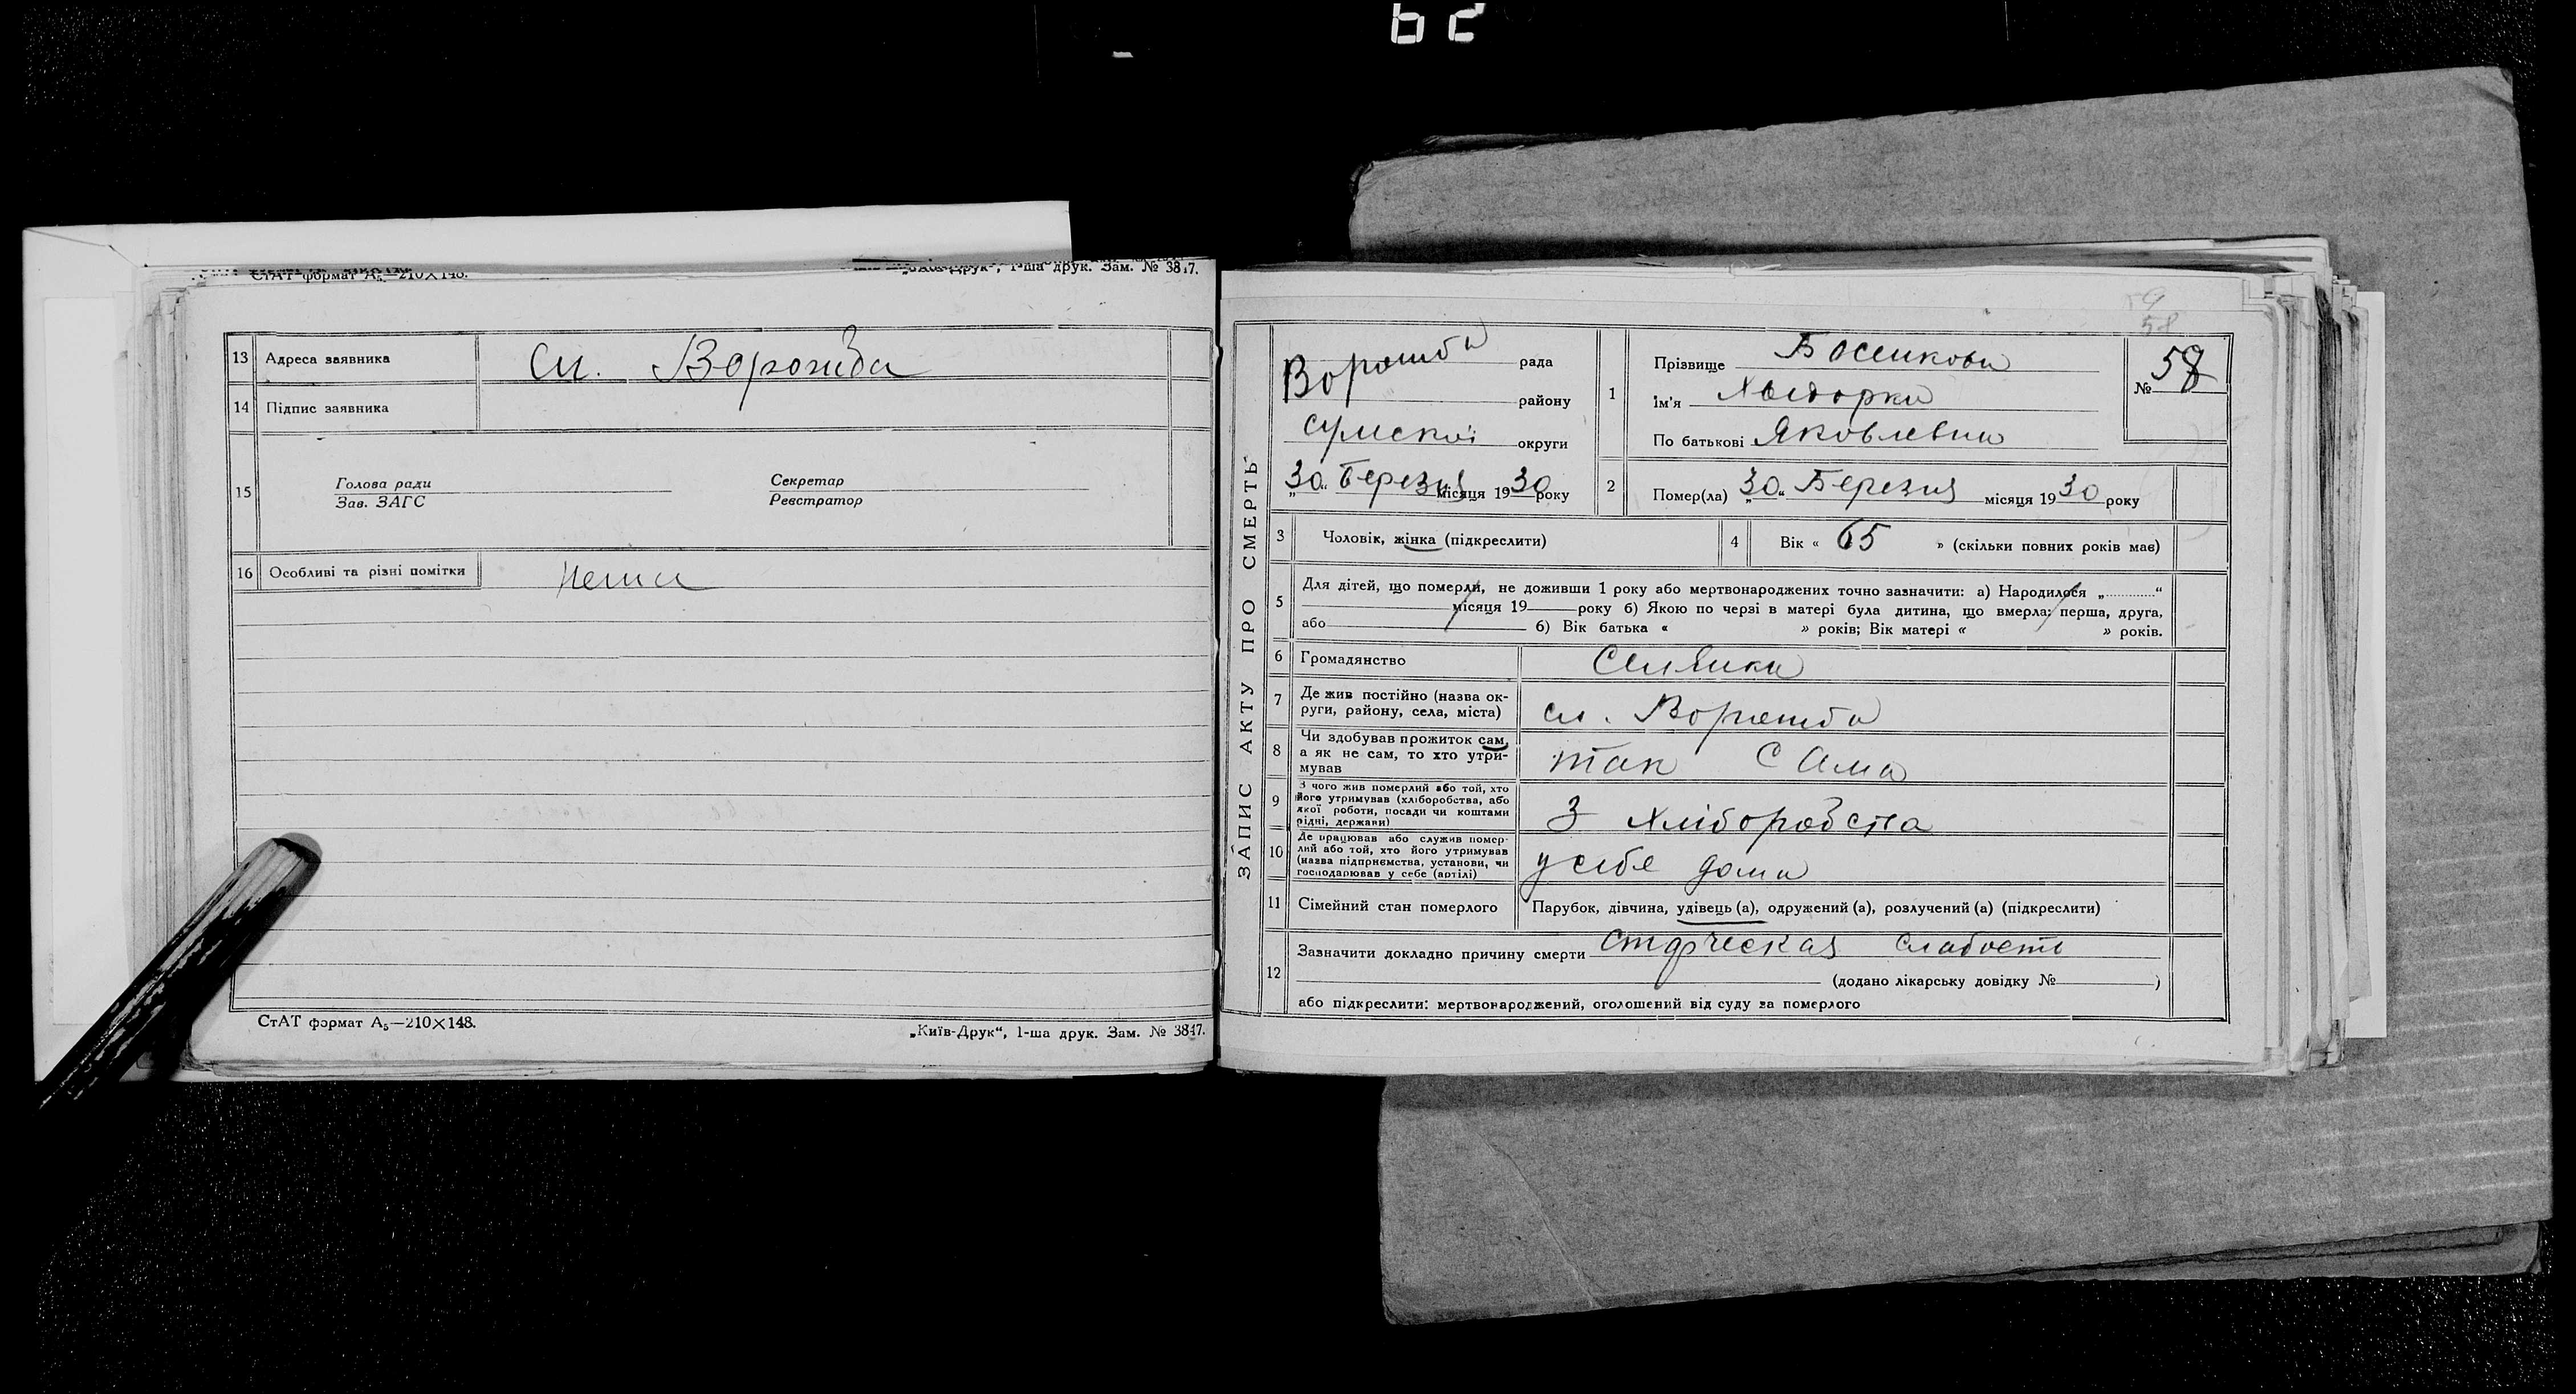 62
СтАТ формат А₅—210×148.
1-ша друк. Зам. № 3847.
13 Адреса заявника сл. Ворожба
14 Підпис заявника
15
Голова ради
Зав. ЗАГС
Секретар
Реєстратор
16 Особливі та різні помітки Нема
СтАТ формат А₅—210×148.
„Київ-Друк“, 1-ша друк. Зам. № 3847.
ЗАПИС АКТУ ПРО СМЕРТЬ
Ворожба рада
району
Сумской округи
„30“ Березня місяця 1930 року
59
58
1 Прізвище
Ім'я
По батькові Яковлевна
№ 58
2 Помер(ла) „30“ Березня місяця 1930 року
3 Чоловік, жінка (підкреслити)
4 Вік « 65 » (скільки повних років має)
5 Для дітей, що померли, не доживши 1 року або мертвонароджених точно зазначити: а) Народилося „ “
місяця 19 року б) Якою по черзі в матері була дитина, що вмерла: перша, друга,
або б) Вік батька « » років; Вік матері « » років.
6 Громадянство Селянка
7 Де жив постійно (назва ок-
руги, району, села, міста) сл. Ворожба
8 Чи здобував прожиток сам,
а як не сам, то хто утри-
мував
так Сама
9 З чого жив померлий або той, хто
його утримував (хліборобства, або
якої роботи, посади чи коштами
рідні, держави)
З хліборобства
10 Де працював або служив помер-
лий або той, хто його утримував
(назва підприємства, установи, чи
господарював у себе (артілі)
у себе дома
11 Сімейний стан померлого Парубок, дівчина, удівець (а), одружений (а), розлучений (а) (підкреслити)
12 Зазначити докладно причину смерти старческая слабость
(додано лікарську довідку № )
або підкреслити: мертвонароджений, оголошений від суду за померлого